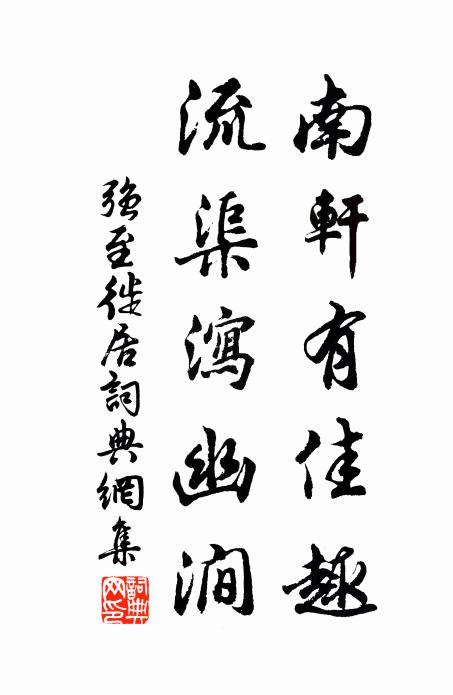 南軒有佳趣
流渠瀉幽澗
強至徙居詞典網集
詞典網印